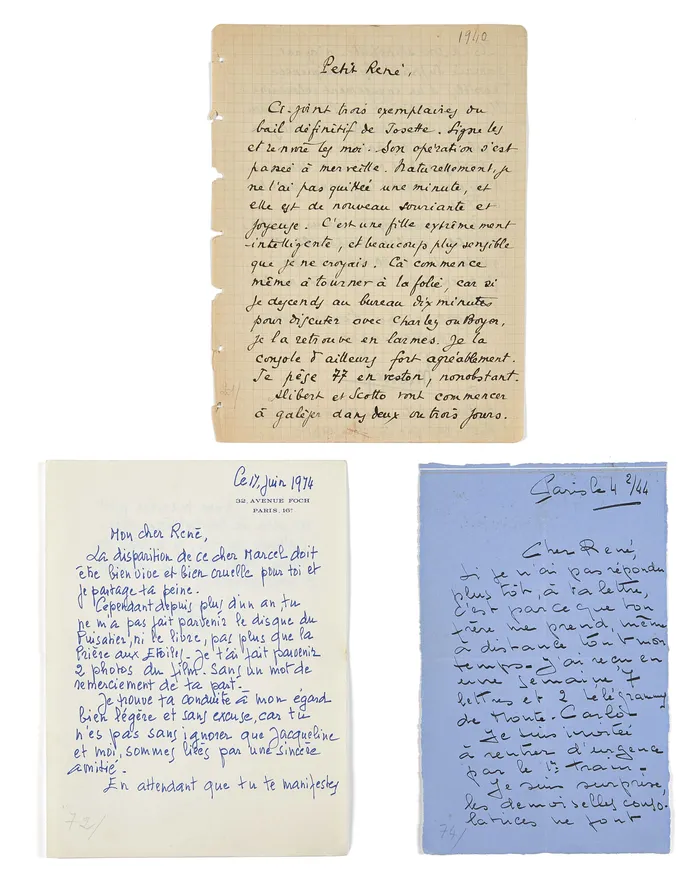 1940
Petit René,
Ci-joint trois exemplaires du
bail définitif de Josette. Signe les
et renvoie les moi. Son opération s'est
passée à merveille. Naturellement, je
ne l'ai pas quittée une minute, et
elle est de nouveau souriante et
joyeuse. C'est une fille extrêmement
intelligente, et beaucoup plus sensible
que je ne croyais. Cà commence
même à tourner à la folie, car si
je descends au bureau dix minutes
pour discuter avec Charley ou Boyer,
je la retrouve en larmes. Je la
console d'ailleurs fort agréablement.
Je pèse 77 en veston, nonobstant.
Alibert et Scotto vont commencer
à galéjer dans deux ou trois jours.
Ce 17, Juin 1974
32, AVENUE FOCH
PARIS, 16E
Mon cher René,
La disparition de ce cher Marcel doit
être bien vive et bien cruelle pour toi et
je partage ta peine.
Cependant depuis plus d'un an, tu
ne m'a pas fait parvenir le disque du
Puisatier, ni le libre, pas plus que la
Prière aux Etoiles. Je t'ai fait parvenir
2 photos du film. Sans un mot de
remerciement de ta part.
Je trouve ta conduite à mon égard
bien légère et sans excuse, car tu
n'es pas sans ignorer que Jacqueline
et moi, sommes liées par une sincère
amitié.
En attendant que tu te manifestes
72/
Paris le 4 2/44
Cher René,
Si je n'ai pas répondu
plus tôt, à ta lettre,
c'est parce que ton
frère me prend, même
à distance tout mon
temps. J'ai reçu en
une semaine 7
lettres et 2 télégrammes
de Monte-Carlo.
Je suis invitée
à rentrer d'urgence
par le 1er train.
Je suis surprise,
les demoiselles conso-
latrices ne font
74/